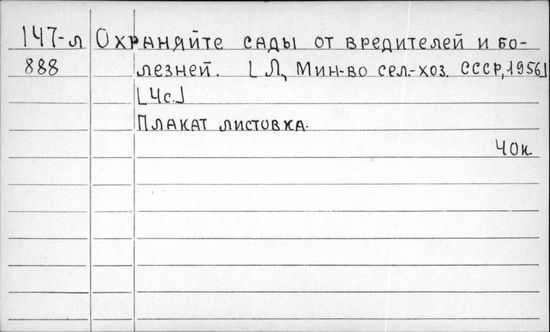 147-л Охраняйте сады от вредителей и бо-
888 лезней. [Л, Мин-во сел.-хоз. СССР, 1956]
[4с.]
Плакат листовка.
40к